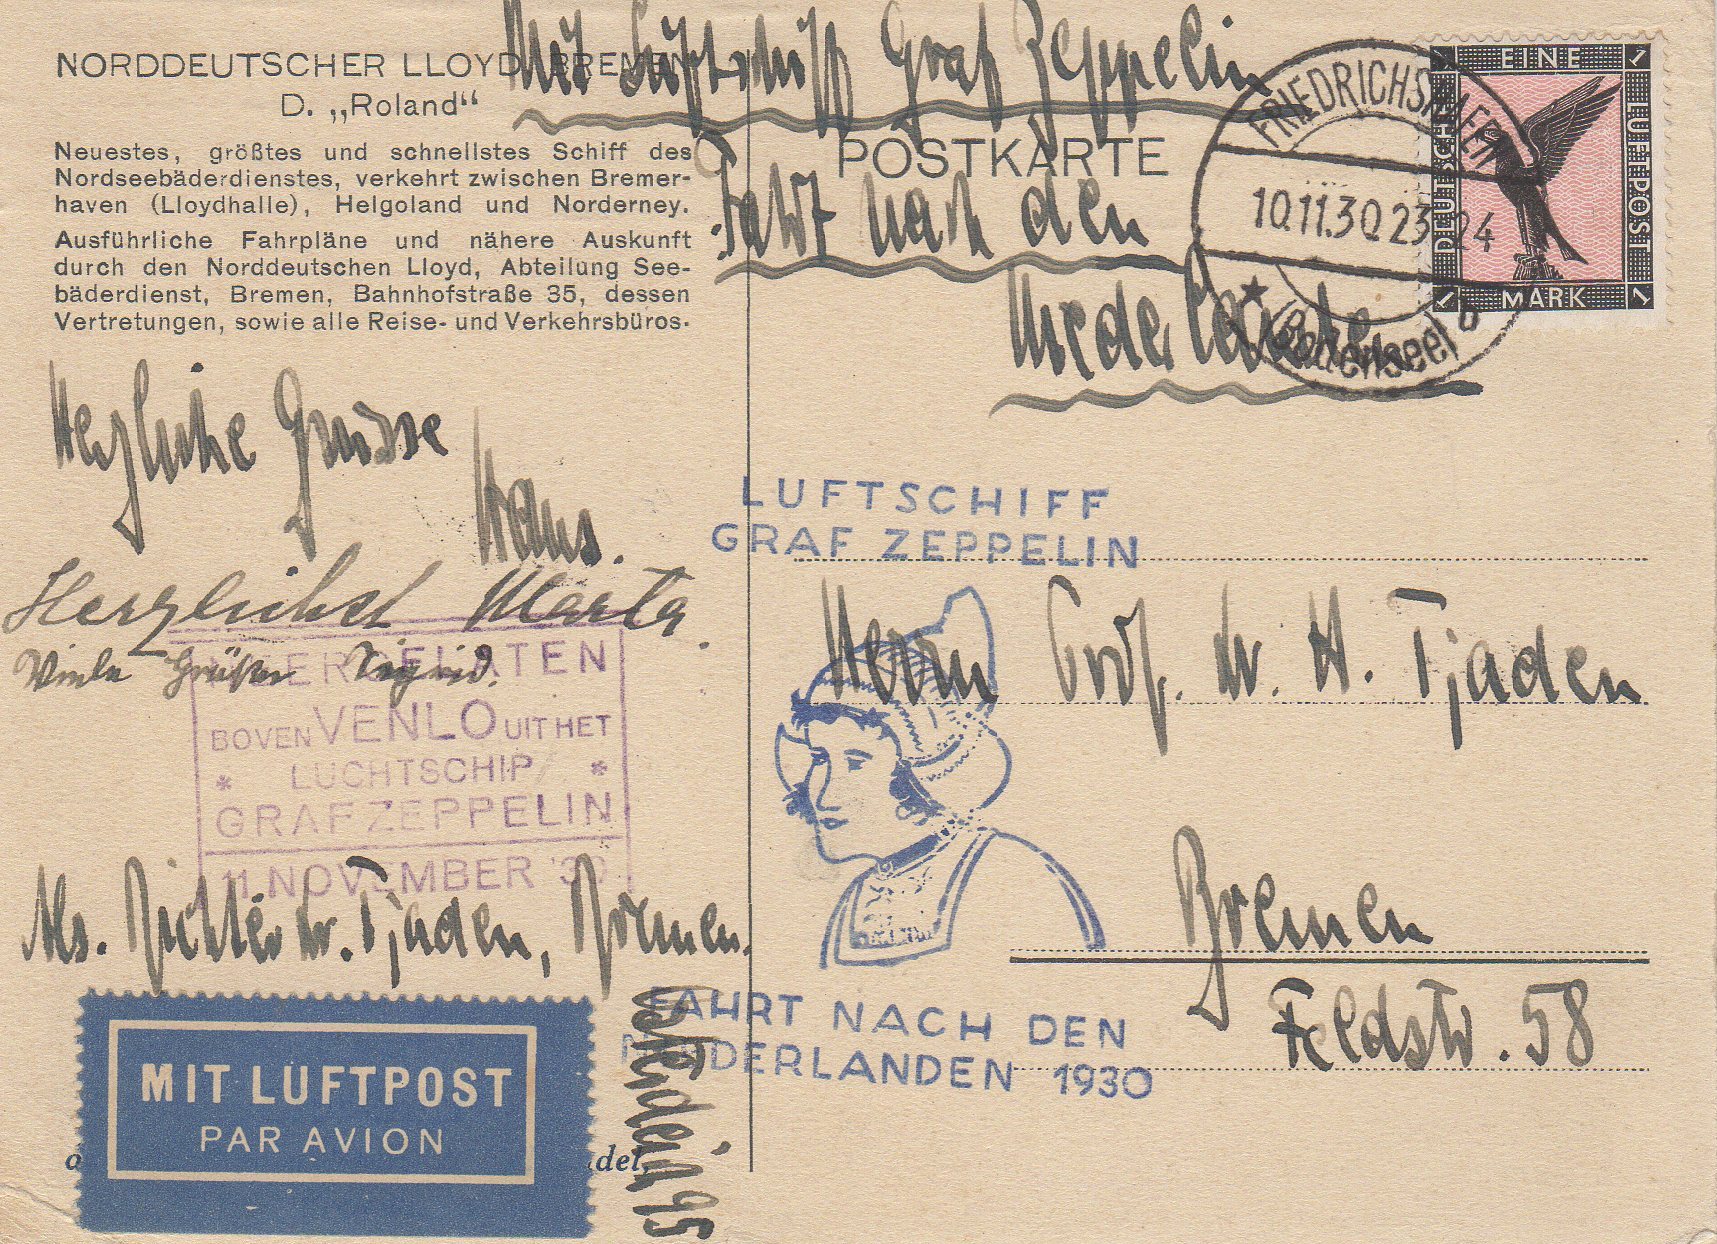 Mit Luftschiff Graf Zeppelin
NORDDEUTSCHER LLOYD, BREMEN
D. „Roland“
Neuestes, größtes und schnellstes Schiff des
Nordseebäderdienstes, verkehrt zwischen Bremer-
haven (Lloydhalle), Helgoland und Norderney.
Ausführliche Fahrpläne und nähere Auskunft
durch den Norddeutschen Lloyd, Abteilung See-
bäderdienst, Bremen, Bahnhofstraße 35, dessen
Vertretungen, sowie alle Reise- und Verkehrsbüros.
POSTKARTE
Fahrt nach den
Niederlanden
FRIEDRICHSHAFEN
10.11.30.23-24
(Bodensee) b
EINE
DEUTSCHE
LUFTPOST
1 MARK 1
Herzliche Grüsse
Hans.
Herzlichst Marta.
Viele Grüße Sigrid.
NEERGELATEN
BOVEN VENLO UIT HET
* LUCHTSCHIP *
GRAF ZEPPELIN
11 NOVEMBER '30
Abs. Richter Dr. Tjaden, Bremen.
95
MIT LUFTPOST
PAR AVION
del,
LUFTSCHIFF
GRAF ZEPPELIN
Herrn Prof. Dr. H. Tjaden
Bremen
Feldstr. 58
FAHRT NACH DEN
NIEDERLANDEN 1930